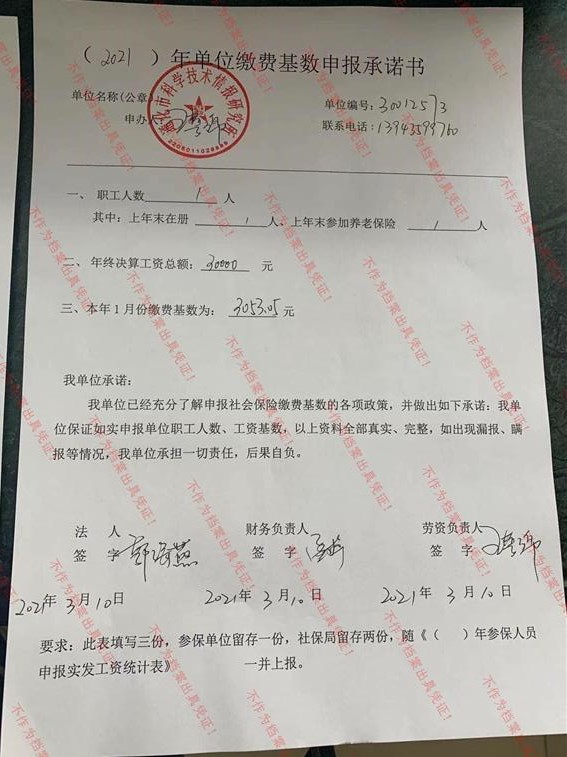 （2021）年单位缴费基数申报承诺书
单位名称(公章)
单位编号：30012573
申办人
联系电话：13943599760
通化市科学技术情报研究所
一、 职工人数 1 人
其中：上年末在册 1 人、上年末参加养老保险 1 人
二、年终决算工资总额：30000 元
三、本年1月份缴费基数为：3053.05元
我单位承诺：
我单位已经充分了解申报社会保险缴费基数的各项政策，并做出如下承诺：我单
位保证如实申报单位职工人数、工资基数，以上资料全部真实、完整，如出现漏报、瞒
报等情况，我单位承担一切责任，后果自负。
法 人 财务负责人 劳资负责人
签 字 签 字 签 字
2021年3月10日 2021年3月10日 2021年3月10日
要求：此表填写三份，参保单位留存一份，社保局留存两份，随《（ ）年参保人员
申报实发工资统计表》 一并上报。
不作为档案出具凭证！